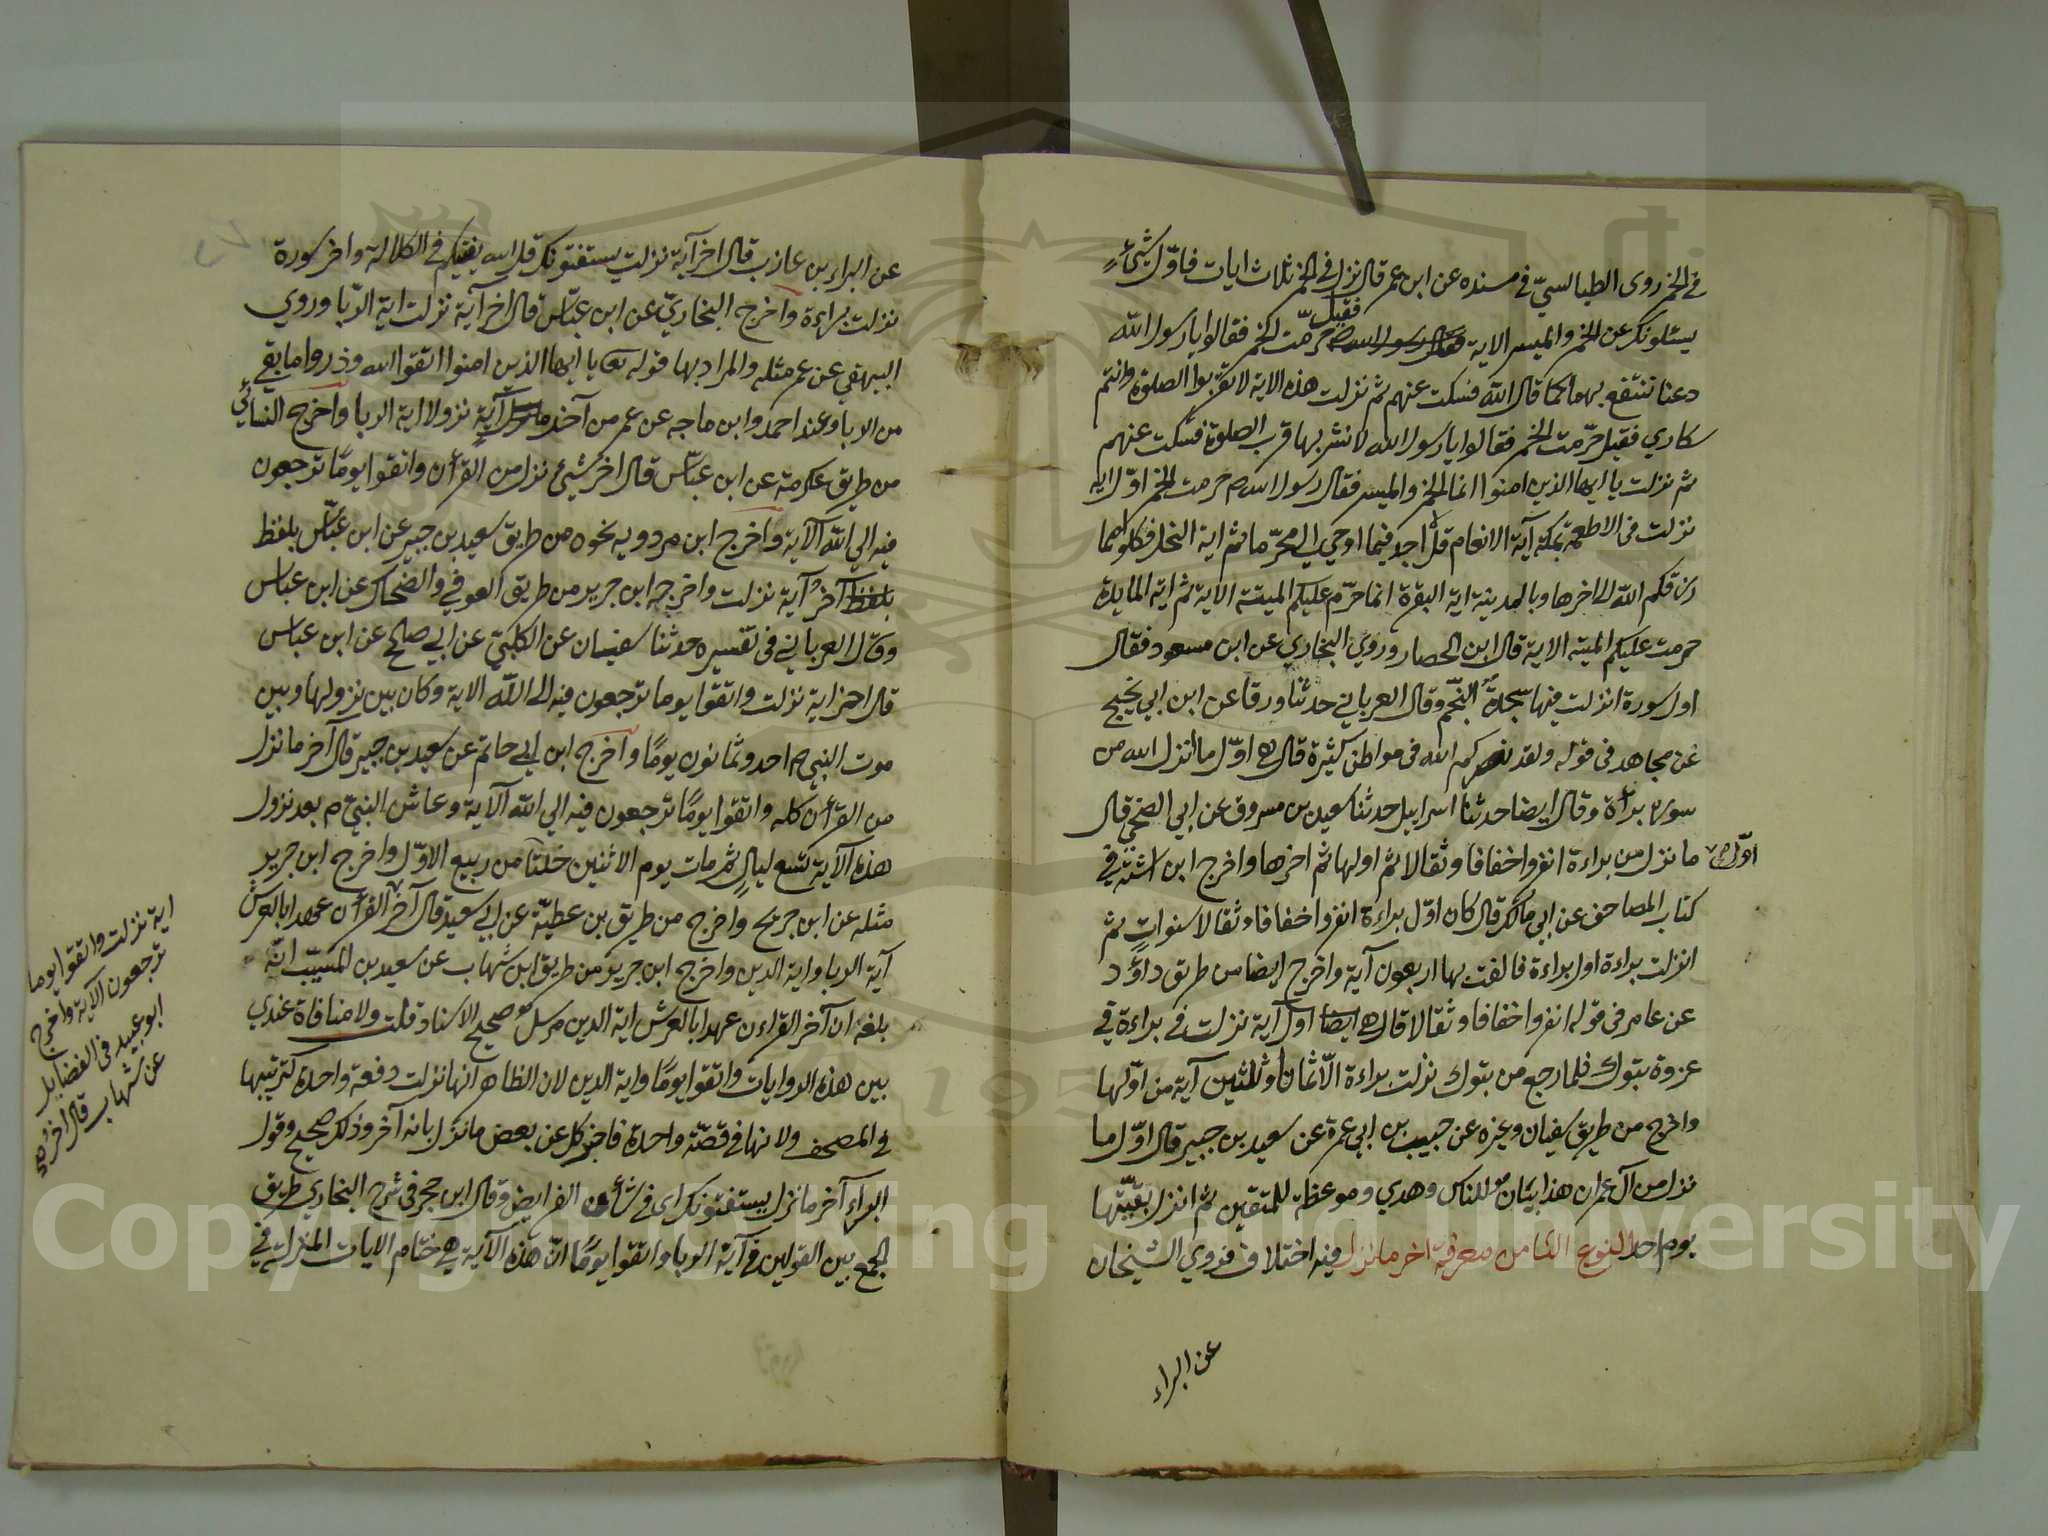 في الخمر روى الطيالسيّ في مسنده عن ابن عمر قال نزل في الخمر ثلاث ايات فاوّل شيءٍ
يسئلونك عن الخمر والميسر الاية فقيل حرّمت الخمر فقالوا يا رسول الله
دعنا ننتفع بها كما قال الله فسكت عنهم ثم نزلت هذه الاية لا تقربوا الصلوة وانتم
سكاري فقيل حرّمت الخمر فقالوا يا رسول الله لا نشربها قرب الصلوة فسكت عنهم
ثم نزلت يا ايها الذين امنوا انما الخمر والميسر فقال رسول الله م حرمت الخمر اوّل اية
نزلت في الاطعمة بمكة آية الانعام قل لا اجد فيما اوحي الي محرّما ثم اية النحل فكلوا مما
رزقكم الله الى اخرها وبالمدينة اية البقرة انما حرّم عليكم الميتة الاية ثم اية المايدة
حرمت عليكم الميتة الاية قال ابن الحصار وروي البخاري عن ابن مسعود فقال
اول سورة انزلت فيها سجدة النجم وقال العربابي حدثنا ورقا عن ابن ابي نجيح
عن مجاهد في قوله ولقد نصركم الله في مواطن كثيرة قال هي اوّل ما انزل الله من
سورة براة وقال ايضا حدثنا اسرايل حدثنا سعيد بن مسروق عن ابي الضحي قال
اوّل ما نزل من براءة انفروا خفافا وثقالا ثم اولها ثم اخرها واخرج ابن اشته في
كتاب المصاحف عن ابي مالك قال كان اوّل براءة انفروا خفافا وثقالا سنوات ثم
انزلت براءة اول براءة فالفت بها اربعون آية واخرج ايضا من طريق داوُد
عن عامر في قوله انفروا خفافا وثقالا قال هي اول آية نزلت في براءة في
غزوة تبوك فلما رجع من تبوك نزلت براءة الّا ثمان وثلثين آية من اوّلها
واخرج من طريق سفيان وغيره عن حبيب بن ابي عمرة عن سعيد بن جبير قال اوّل ما
نزل من آل عمران هذا بيان للناس وهدي وموعظة للمتقين ثم انزل بقيّتها
يوم احد النوع الثامن معرفة اخر ما نزل فيه اختلاف فروي الشيخان
عن البراء
عن البراء بن عازب قال اخر آية نزلت يستفتونك قل الله يفتيكم في الكلالة واخر سورة
نزلت براءة واخرج البخاريّ عن ابن عبّاس قال اخر آية نزلت اية الرّبا وروي
البيهقي عن عمر مثله والمراد بها قوله تعا يا ايها الذين امنوا اتقوا الله وذروا ما بقي
من الربا وعند احمد وابن ماجه عن عمر من آخر آية نزولا اية الربا واخرج النسائيّ
من طريق عكرمة عن ابن عبّاس قال اخر شيئ نزل من القرآن واتقوا يوما ترجعون
فيه الي الله الآية واخرج ابن مردويه نحوه من طريق سعيد بن جبير عن ابن عبّاس بلفظ
آخر آية نزلت واخرجه ابن جرير من طريق العوفي والضحاك عن ابن عباس
وقال العربابي في تفسيره حدثنا سفيان عن الكلبيّ عن ابي صالح عن ابن عباس
قال اخر اية نزلت واتقوا يوما ترجعون فيه الى الله الاية وكان بين نزولها وبين
موت النبي م احد وثمانون يومًا واخرج ابن ابي حاتم عن سعيد بن جبير قال آخر ما نزل
من القرآن كله واتقوا يومًا ترجعون فيه الي الله الآية وعاش النبيّ م بعد نزول
هذه الآية تسع ليالٍ ثم مات يوم الاثنين خلتا من ربيع الاوّل واخرج ابن جرير
مثله عن ابن جريح واخرج من طريق بن عطيّة عن ابي سعيد قال آخر القرآن عهدا بالعرش
آية الربا واية الدين واخرج ابن جرير من طريق ابن شهاب عن سعيد بن المسيّب انّه
بلغه ان آخر القراءن عهدا بالعرش اية الدين مرسل صحيح الاسناد قلت ولا منافاة عندي
بين هذه الروايات واتقوا يومًا واية الدين لان الظاهر انها نزلت دفعة واحدة كترتيبها
في المصحف ولانها في قصّة واحدة فاخبر كل عن بعض ما نزل بانه آخر وذلك صحيح وقول
البراء آخر ما نزل يستفتونك اى في شأن الفرايض وقال ابن حجر في شرح البخاري طريق
الجمع بين القولين في آية الربا واتقوا يومًا انّ هذه الآية هي ختام الايات المنزلة في
اية نزلت واتقوا يوما
ترجعون الآية واخرج
ابو عبيد في الفضايل
عن شهاب قال اخر
Copyright © King Saud University